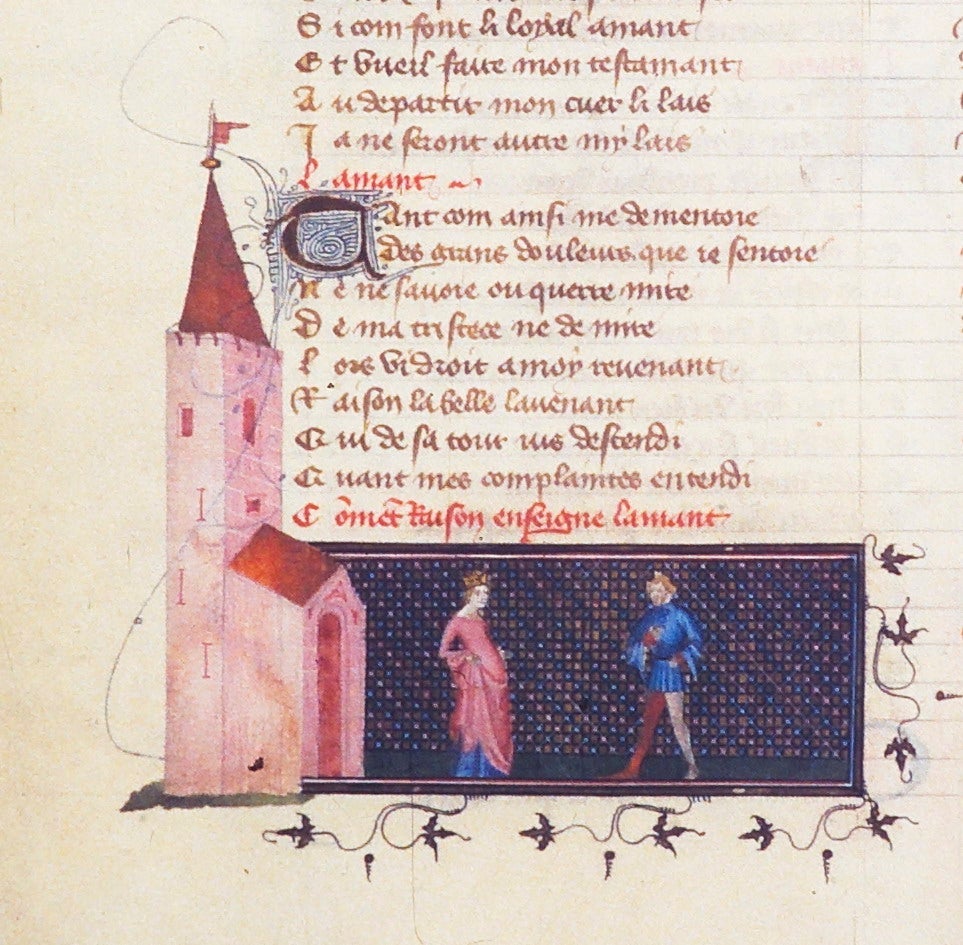 S i com font li loyal amant
E t vueil faire mon testamant
A u departir mon cuer li lais
I a ne seront autre my lais
L amant
Tant com ainsi me dementoie
des grans douleurs que ie sentoie
N e ne savoie ou querre mire
D e ma tristece ne de mire
L ors vi droit a moy revenant
R aison la belle lavenant
Q ui de sa tour ius descendi
Q uant mes complaintes entendi
C õmēt Raison enseigne lamant